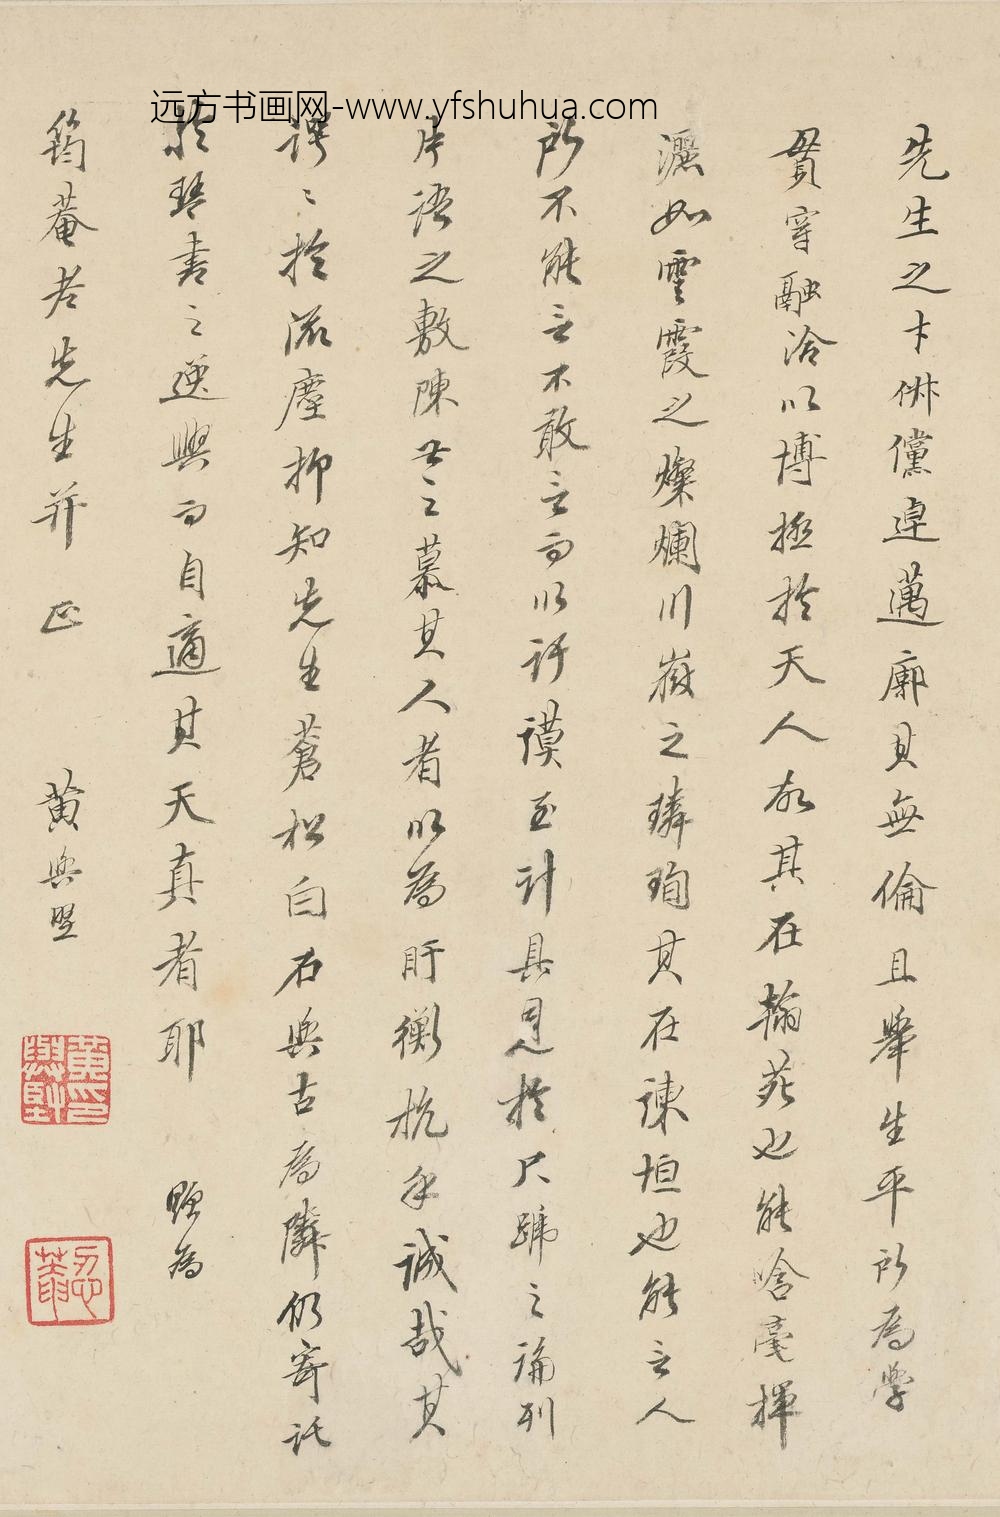 远方书画网-www.yfshuhua.com
先生之才俶儻卓邁廓其無倫且舉生平所為學
貫穿融洽以博極於天人故其在翰苑也能含毫揮
灑如雲霞之燦爛川嶽之璘珣其在諫垣也能言人
所不能言不敢言而以訏謨至計具見於尺蹏之論列
片語之敷陳世之慕其人者以為盱衡抗手誠哉其
諤々於流塵抑知先生蒼松白石與古為隣仍寄託
於琴書之逸興而自適其天真者耶 題為
筠菴老先生并 正 黄與堅
黃與堅印
忍菴